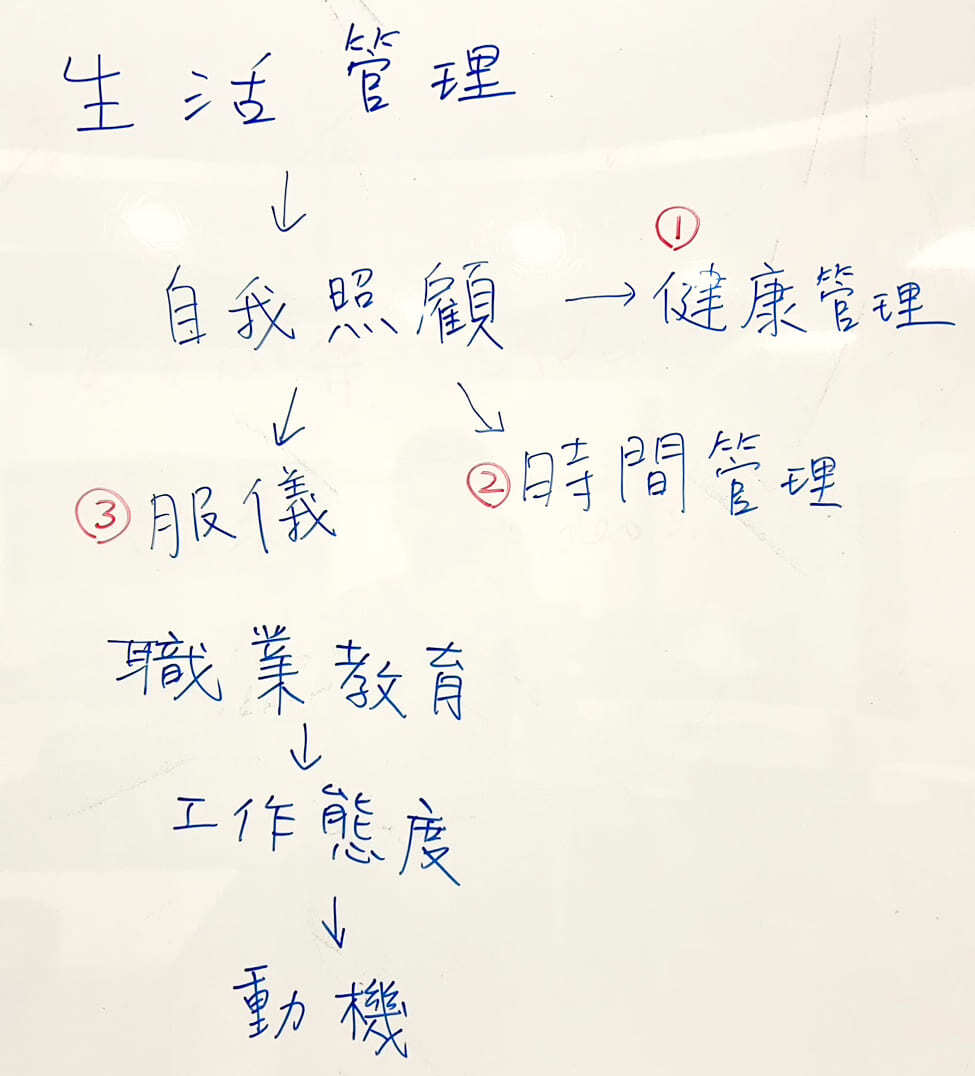 生活管理
↓
自我照顧 → ①健康管理
↙ ↘
③服儀 ②時間管理
職業教育
↓
工作態度
↓
動機